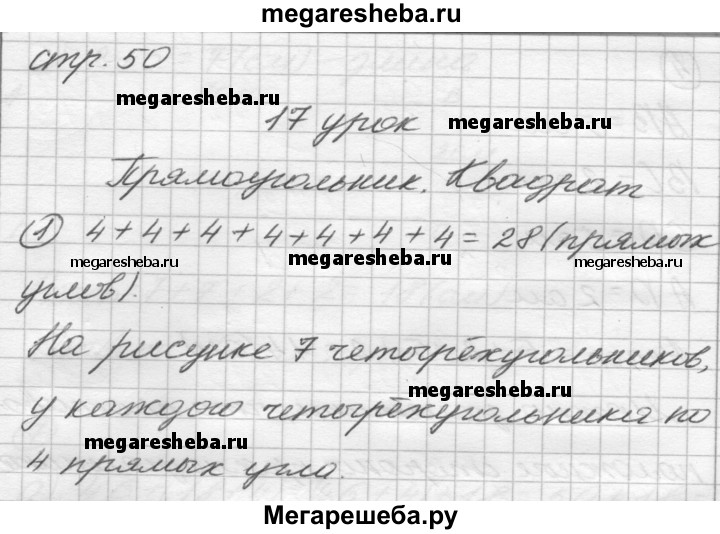 megaresheba.ru
стр. 50
megaresheba.ru
17 урок
megaresheba.ru
Прямоугольник. Квадрат
① 4+4+4+4+4+4+4=28(прямых
megaresheba.ru megaresheba.ru megaresheba.ru
углов).
На рисунке 7 четырёхугольников,
megaresheba.ru
у каждого четырёхугольника по
megaresheba.ru
4 прямых угла.
Мегарешеба.ру